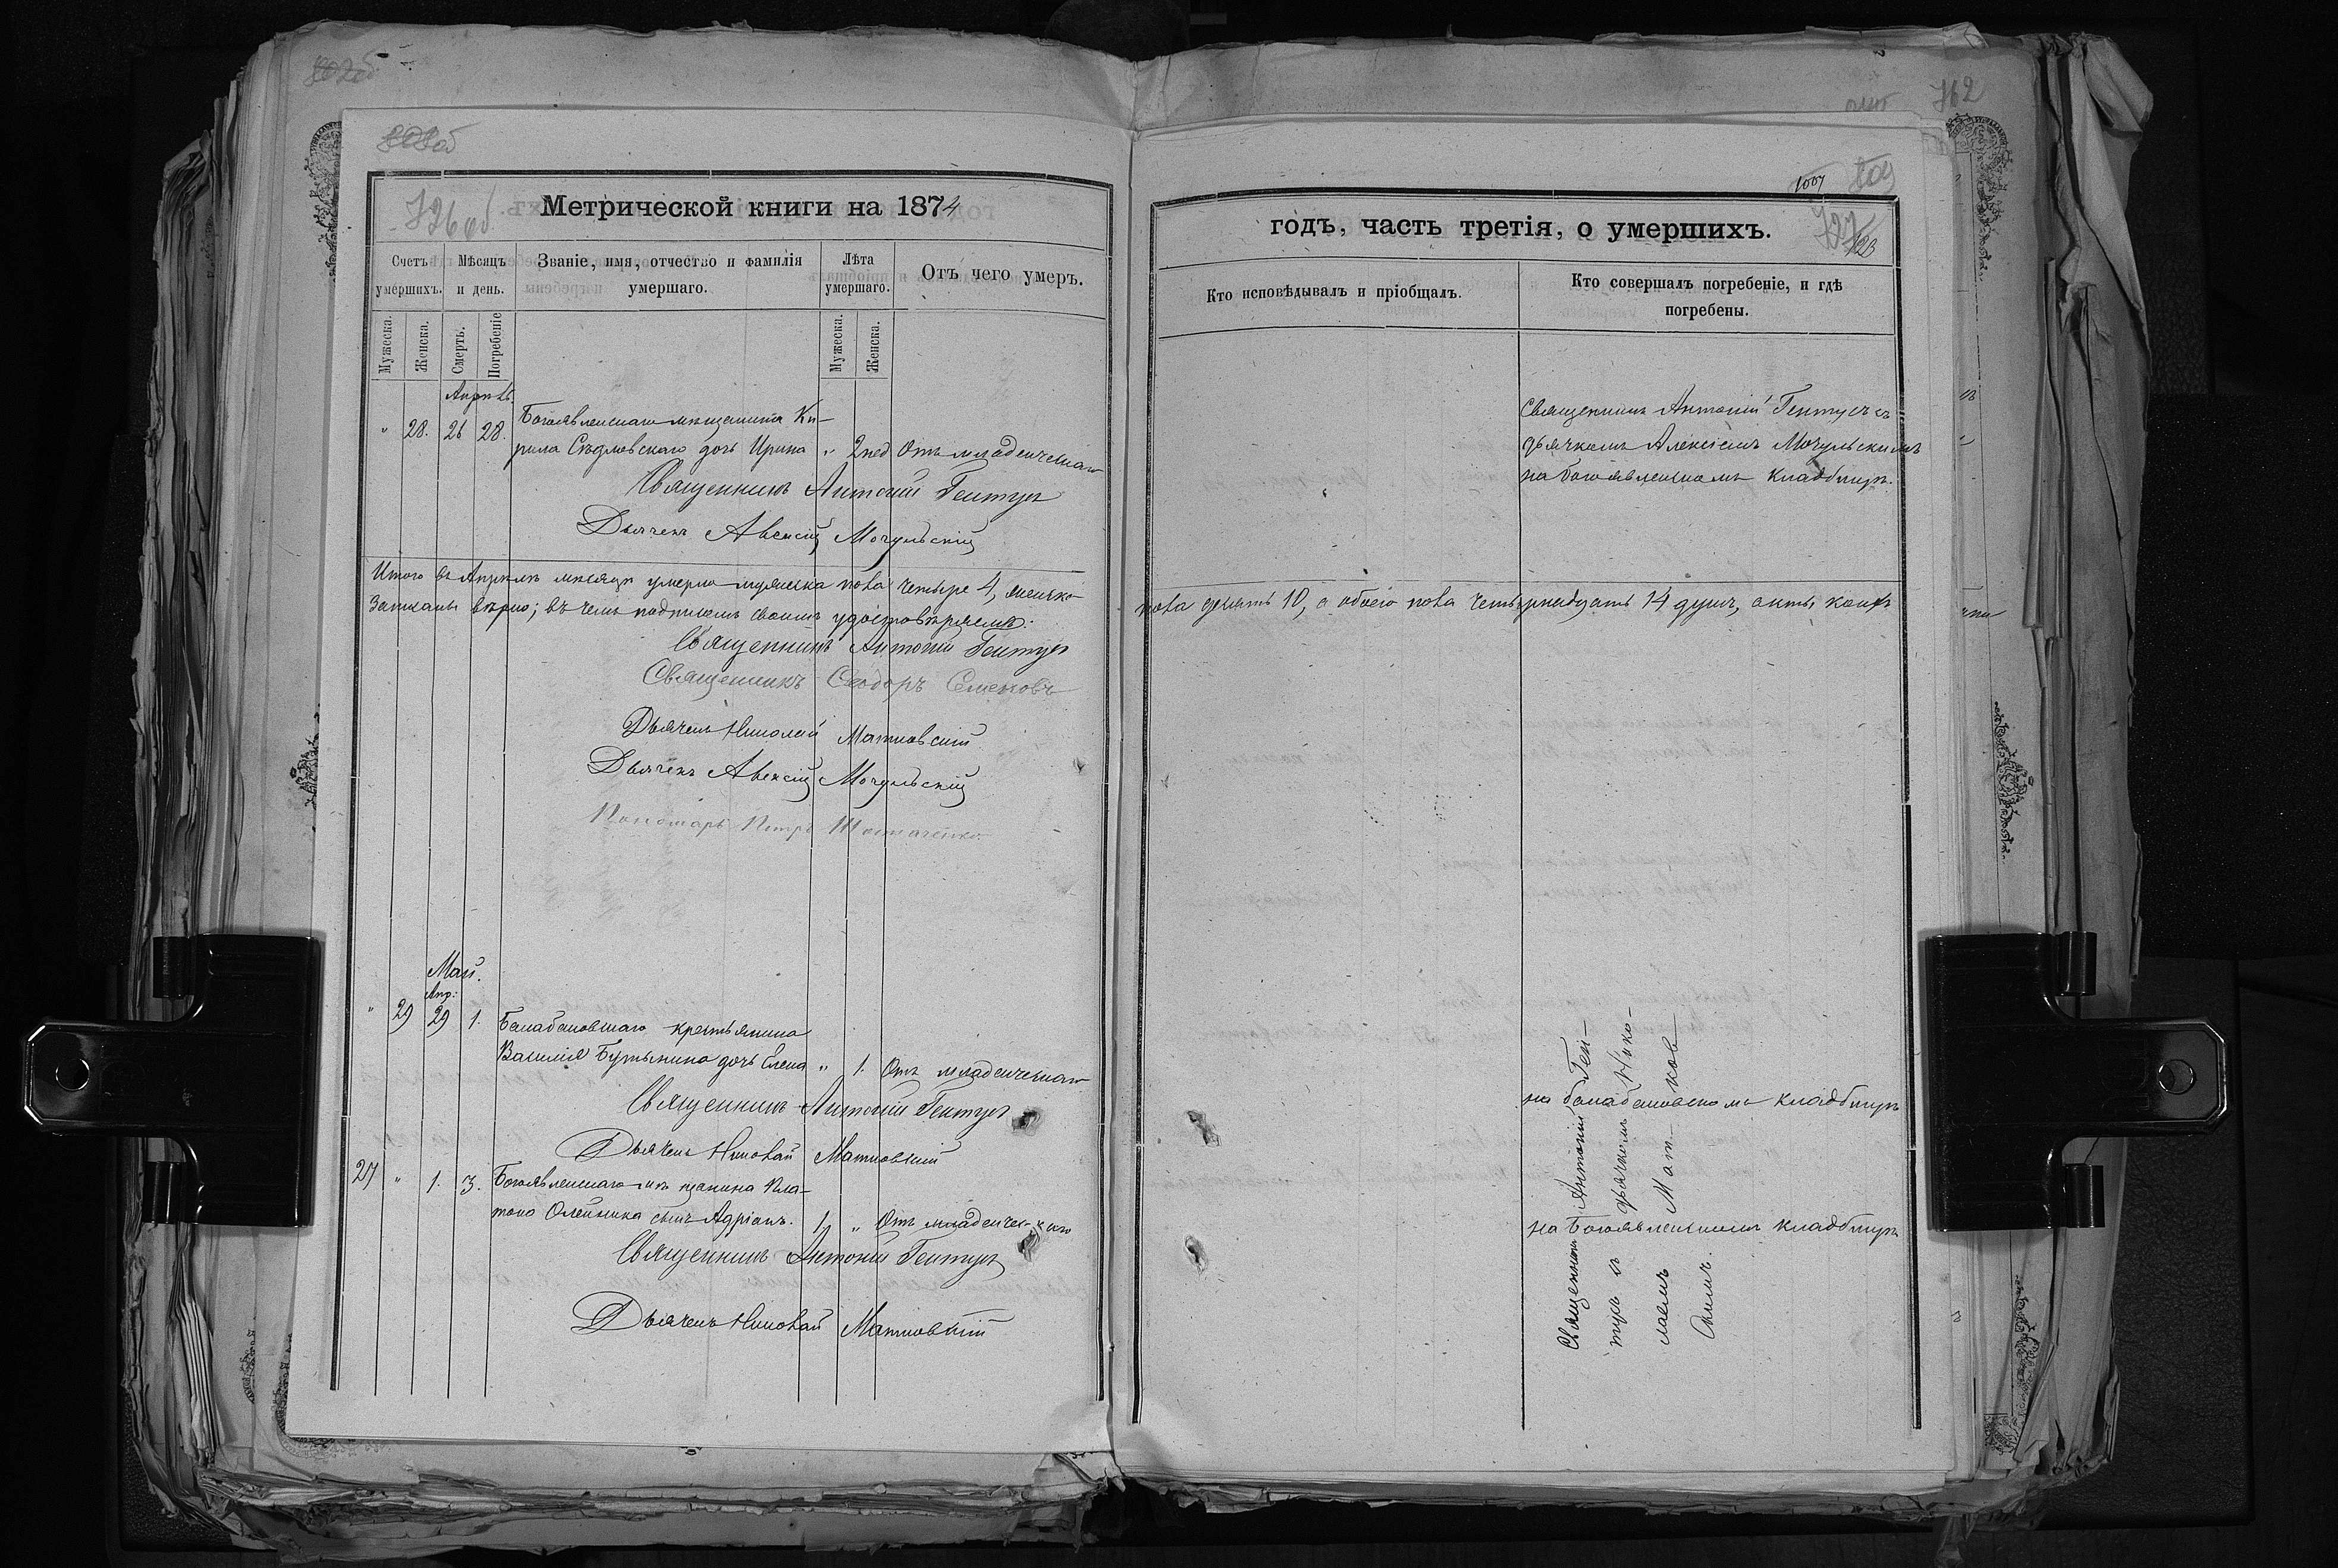 802об
802об
726 об.
Метрической книги на 1874
Счетъ умершихъ.
Мѣсяцъ и день.
Званіе, имя, отчество и фамилія умершаго.
Лѣта умершаго.
Отъ чего умеръ.
Мужеска.
Женска.
Смерть.
Погребеніе
Мужеска.
Женска.
Апрѣль.
" 28. 26 28. Богоявленскаго мѣщанина Ки-
рила Сѣдлевскаго дочь Ирина " 2 нед Отъ младенческаго
Священникъ Антоній Гентушъ
Дьячекъ Алексій Мочульскій
Итого въ Апрѣлѣ мѣсяцѣ умерло мужеска пола четыре 4, женско
записаны вѣрно; въ чемъ подписомъ своимъ удостовѣряемъ:
Священникъ Антоній Гентушъ
Священникъ Ѳеодоръ Семеновъ
Дьячекъ Николай Матковскій
Дьячекъ Алексій Мочульскій
Пономарь Петръ
Май.
Апр:
" 29 29 1. Балабановскаго крестьянина
Василія дочь Елена " 1. Отъ младенческаго
Священникъ Антоній Гентушъ
Дьячекъ Николай Матковскій
27 " 1. 3. Богоявленскаго мѣщанина Пла-
тона Олейника сынъ Адріанъ. 1 " Отъ младенческаго
Священникъ Антоній Гентушъ
Дьячекъ Николай Матковскій
762
1007
803
727
годъ, часть третія, о умершихъ.
Кто исповѣдывалъ и пріобщалъ.
Кто совершалъ погребеніе, и гдѣ погребены.
Священникъ Антоній Гентушъ съ
дьячкомъ Алексіемъ Мочульскимъ
на богоявленскомъ кладбищѣ.
пола десять 10, а обоего пола четырнадцать 14 душъ, акты коихъ
на балабановскомъ кладбищѣ
на Богоявленскомъ кладбищѣ
Священникъ Антоній Ген-
тушъ съ дьячкомъ Нико-
лаемъ Матков-
скимъ.